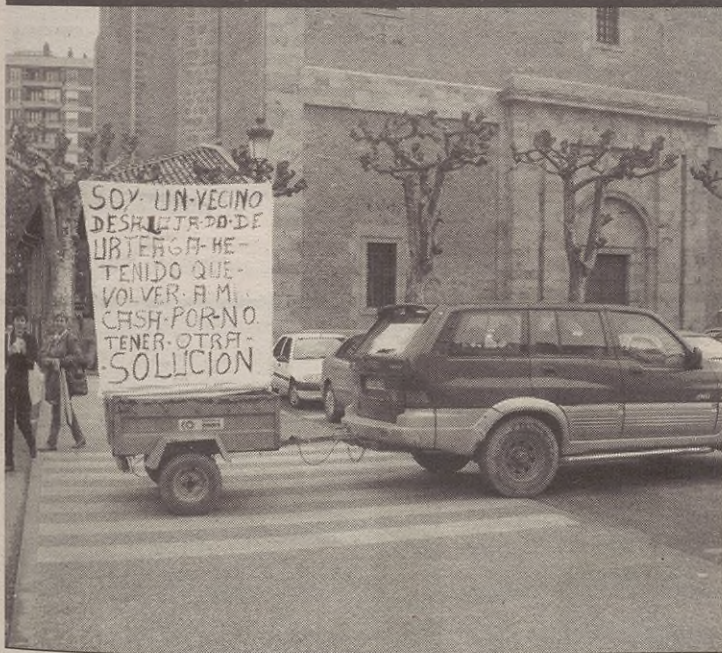 SOY· UN·VECINO
DESALOJADO·DE
URTEAGA·HE-
TENIDO QUE-
VOLVER·A MI
CASA·POR·NO
TENER·OTRA-
·SOLUCION